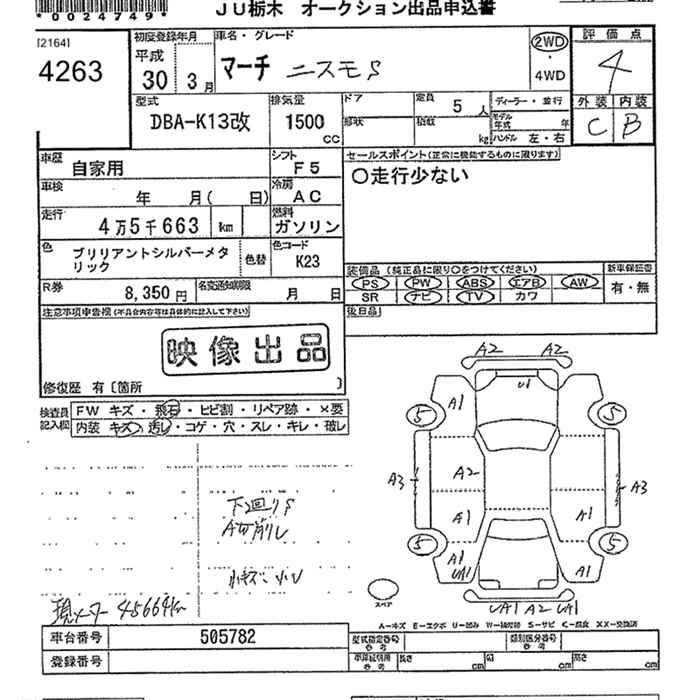 *0024749*
JU栃木 オークション出品申込書
[2164]
4263
初度登録年月
平成
30 3月
車名・グレード
マーチ ニスモS
2WD
・
4WD
評価点
4
外装 内装
C B
型式
DBA-K13改
排気量
1500
CC
ドア
形状
定員
5人
積載
kg
ディーラー・並行
モデル年式 年
ハンドル 左・右
車歴
自家用
シフト
F5
車検
年 月( 日)
冷房
AC
走行
4万5千663 km
燃料
ガソリン
色
ブリリアントシルバーメタリック
色替
色コード
K23
R券
8,350円
名変通知期限
月 日
セールスポイント(正常に機能するものに限ります)
○走行少ない
装備品 (純正品に限り○をつけてください)
PS PW ABS エアB AW
SR ナビ TV カワ
新車保証書
有・無
後日品
注意事項申告欄(不具合内容等は具体的に記入して下さい)
映像出品
修復歴 有〔箇所 〕
検査員記入欄
FW キズ・飛石・ヒビ割・リペア跡・×要
内装 キズ・汚レ・コゲ・穴・スレ・キレ・破レ
下回りS
A切削し
小キズ・小U
現メーター 45664km
A2 A2
U1
A1
5 5
A2
A3 A3
A1 A1
5 5
A1
UA1
A1
スペア
UA1 A2 UA1
A-キズ E-エクボ U-凹み W-補修跡 S-サビ C-腐食 XX-交換済
車台番号 505782
登録番号
型式指定番号
参考
類別区分番号
参考
車庫証明用
参考
長さ cm 幅 cm 高さ cm